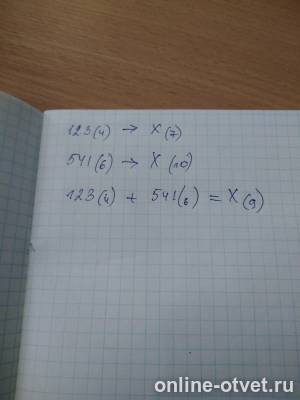 123(4) → X(7)
541(6) → X(10)
123(4) + 541(6) = X(9)
online-otvet.ru